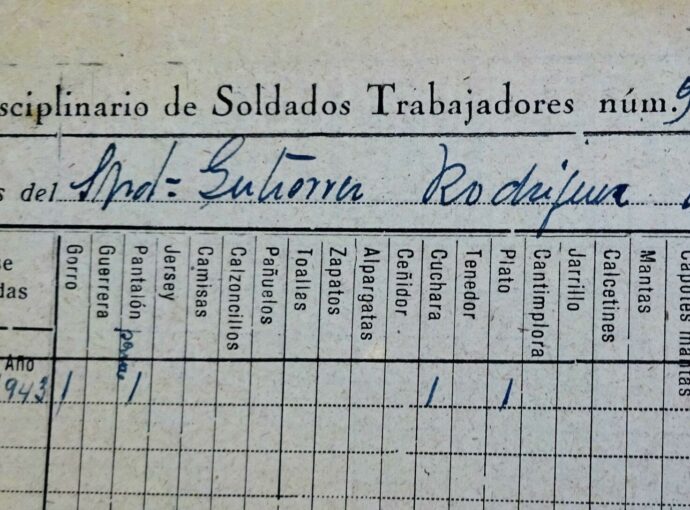 sciplinario de Soldados Trabajadores núm. 9
s del Spdº= Gutiérrez Rodríguez
se
das
Gorro
Guerrera
Pantalón
Jersey
Camisas
Calzoncillos
Pañuelos
Toallas
Zapatos
Alpargatas
Ceñidor
Cuchara
Tenedor
Plato
Cantimplora
Jarrillo
Calcetines
Mantas
Capotes mantas
Año
1943 1 1 1 1